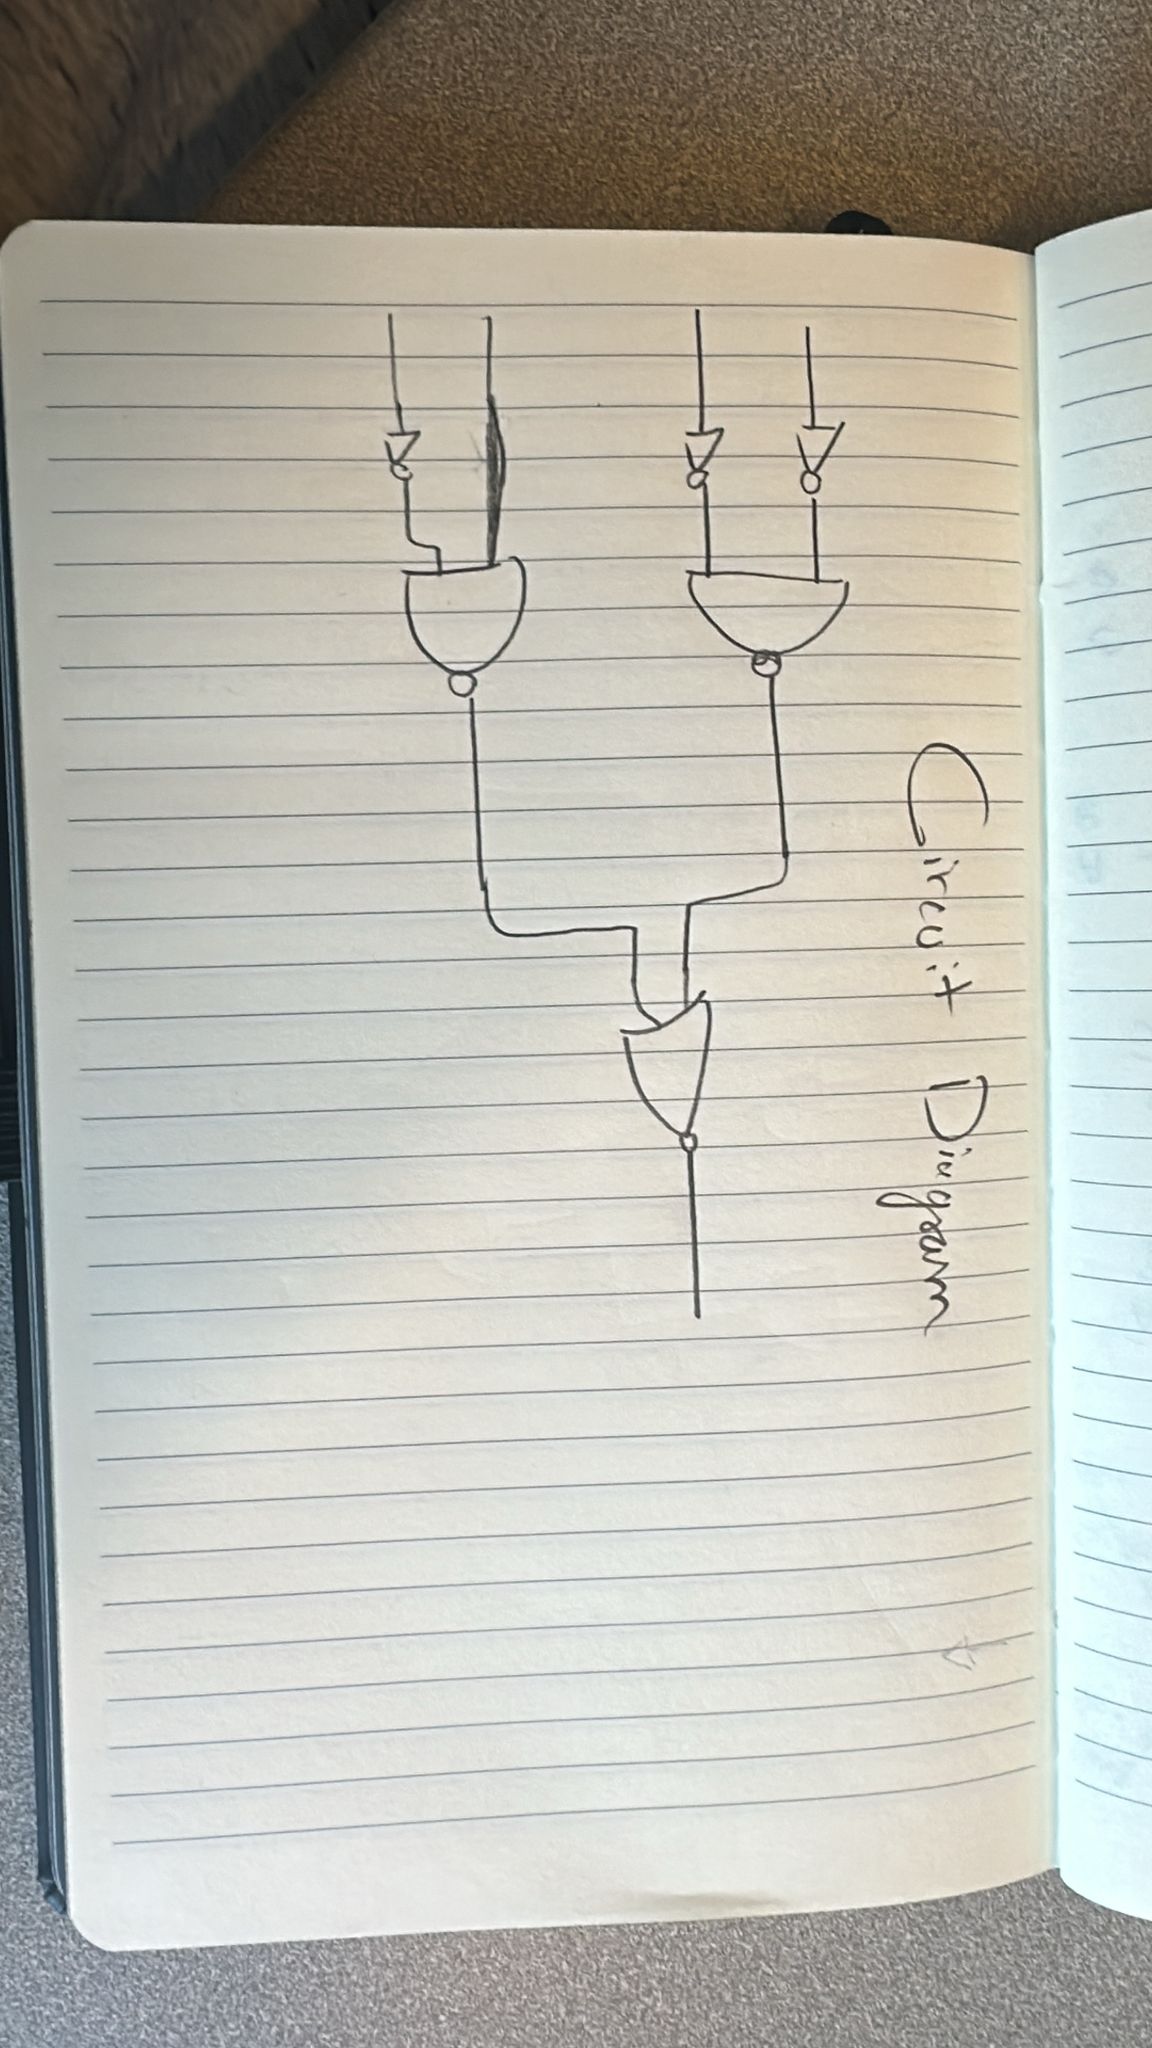 Circuit Diagram